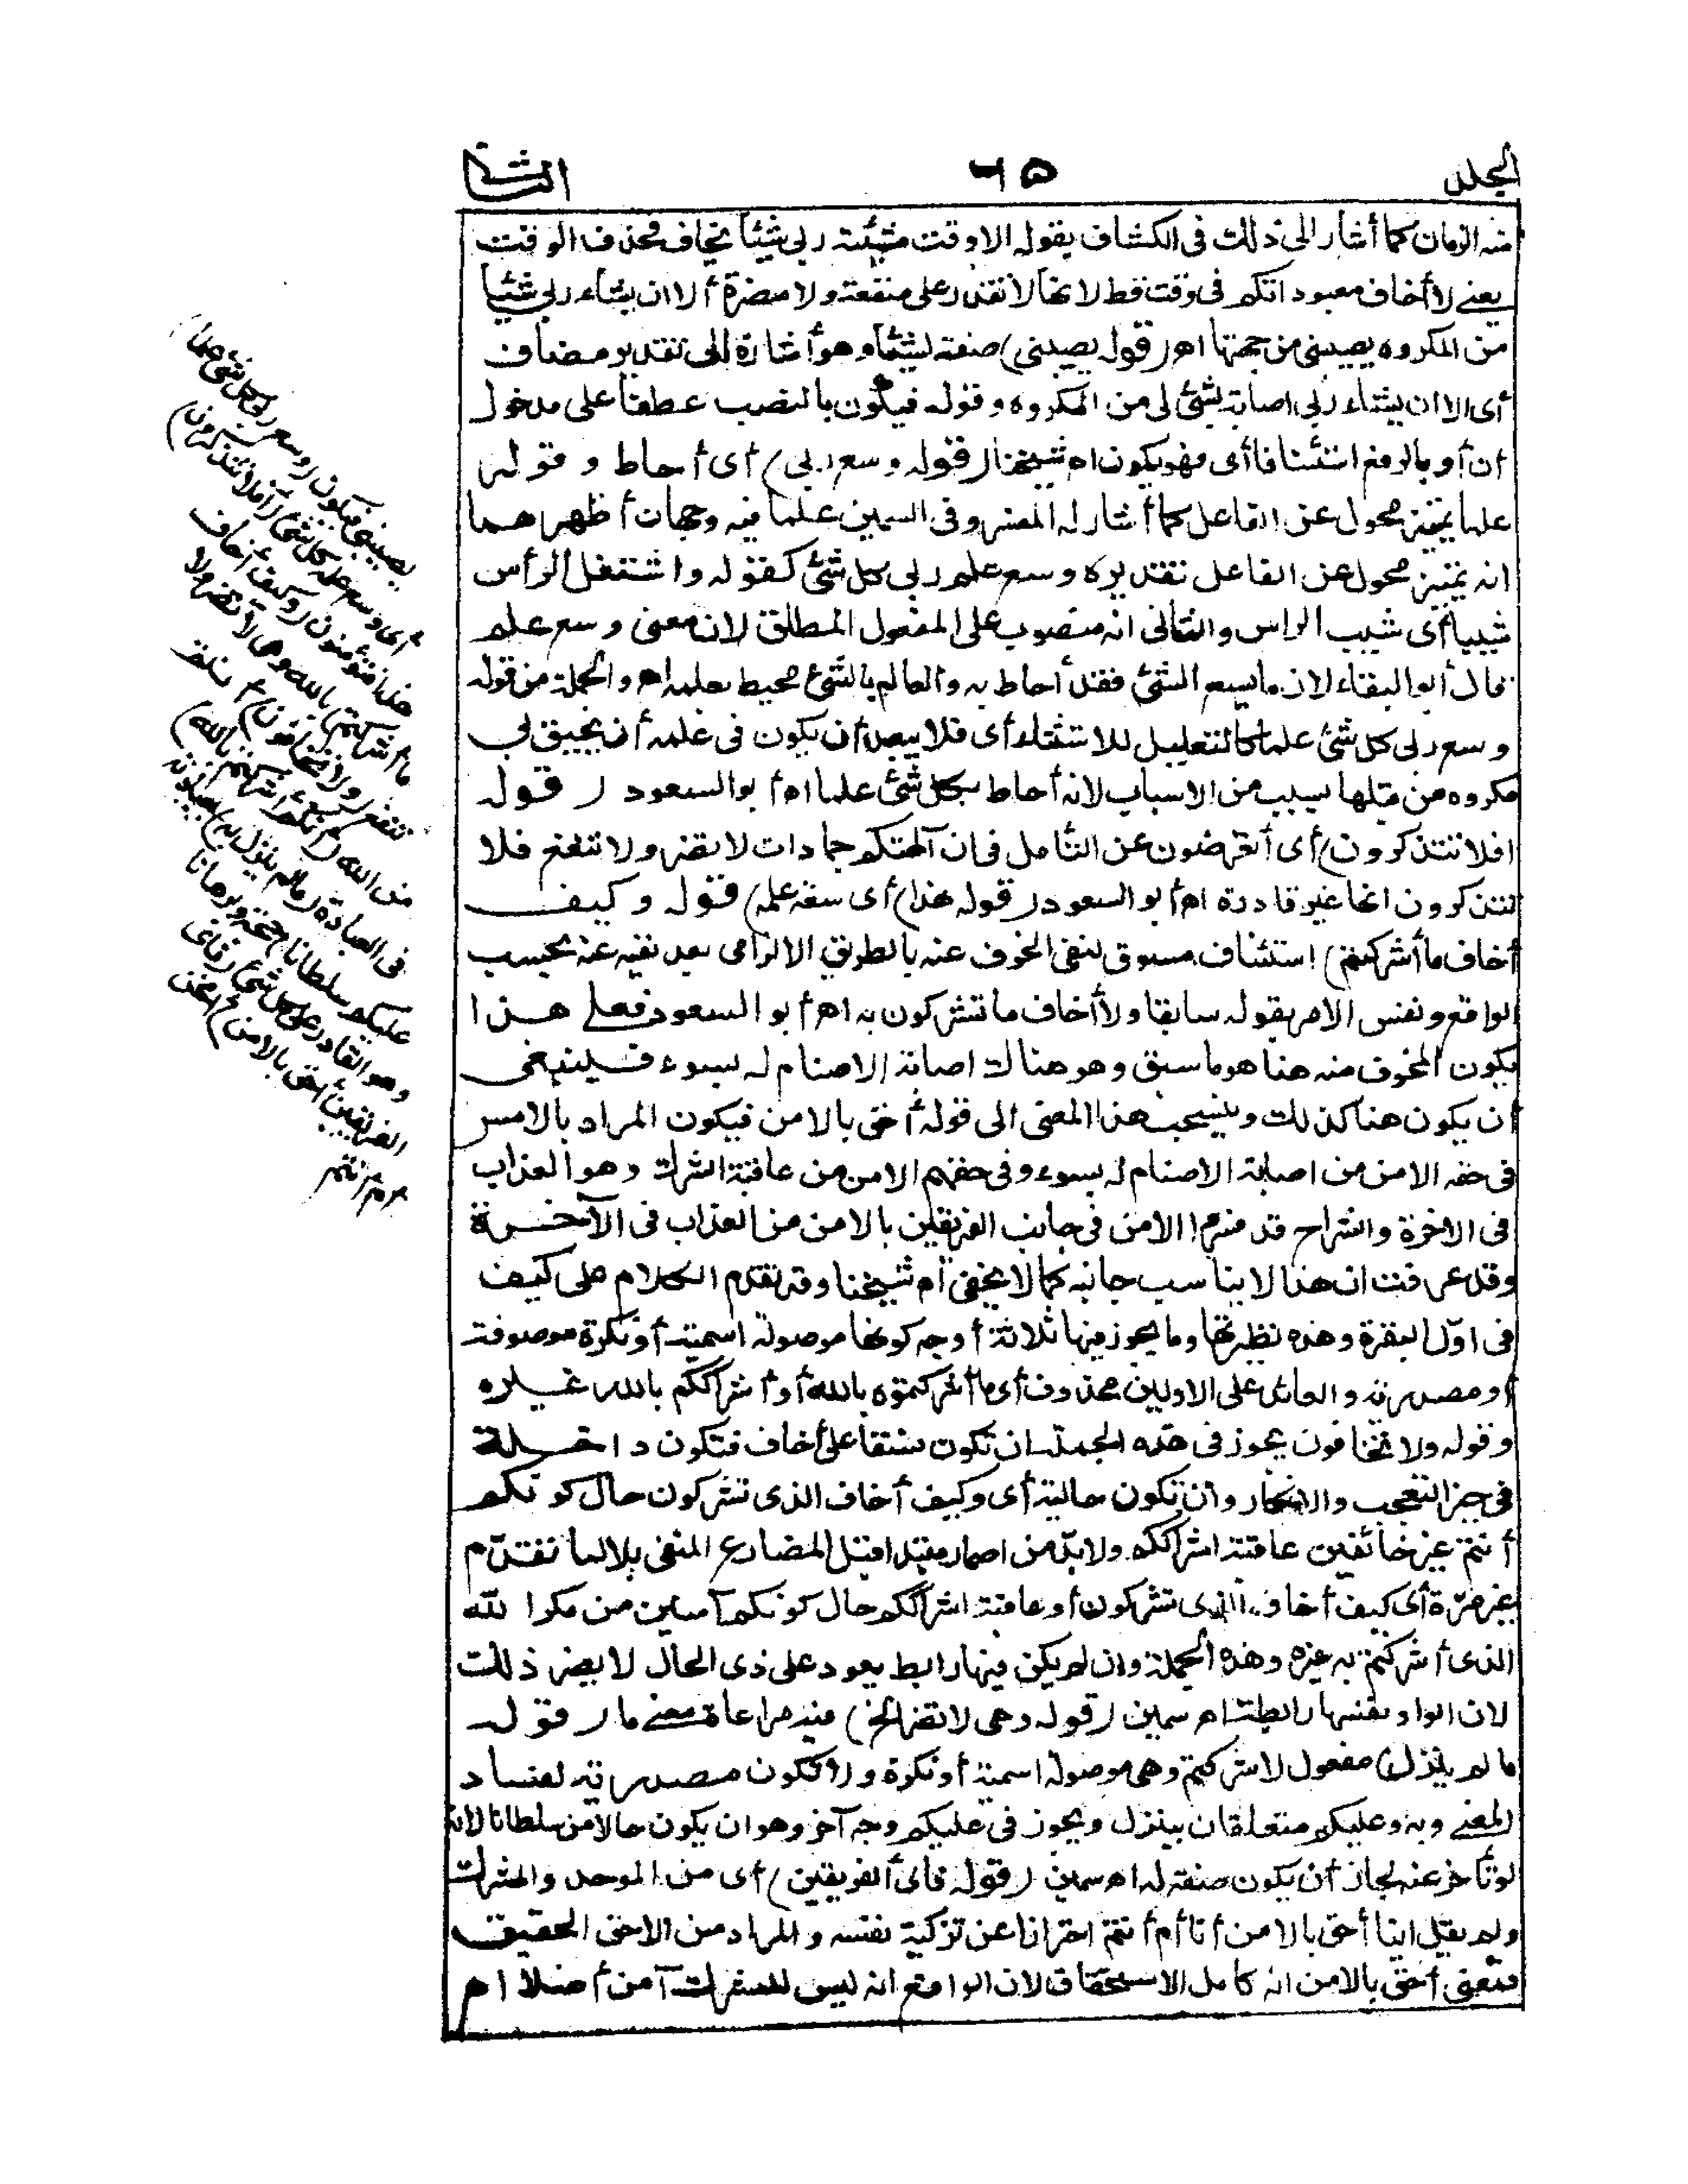 المجلد
٦٥
الثانى
منه الزمان كما أشار الى ذلك فى الكشاف بقوله الا وقت مشيئة ربى شيئا يخاف فحذف الوقت
يعنى لا أخاف معبوداتكم فى وقت قط لانها لا تقدر على منفعة ولا مضرة ألا ان يشاء ربى شيئا
من المكروه يصيبنى من جهتها اه (قوله يصيبنى) صفة لشيئا وهو أشارة الى تقدير مضاف
أى الا ان يشاء ربى اصابة بشئ لى من المكروه وقوله فيكون بالنصب عطفا على مدخول
أن أو بالرفع استئنافا أى فهو يكون اه شيخنا (قوله وسع ربى) أى أحاط وقوله
علما تمييز محول عن الفاعل كما أشار له المفسر وفى السمين علما فيه وجهان أظهرهما
انه تمييز محول عن الفاعل تقديره وسع علم ربى كل شئ كقوله واشتعل الرأس
شيبا أى شيب الراس والثانى انه منصوب على المفعول المطلق لان معنى وسع علم
قال أبو البقاء لان ما يسع الشئ فقد أحاط به والعالم بالشئ محيط بعلمه اه والجملة من قوله
وسع ربى كل شئ علما كالتعليل للاستثناء أى فلا يبعد أن يكون فى علمه أن يحيق بى
مكروه من قبلها بسبب من الاسباب لانه أحاط بكل شئ علما اه أبو السعود (قوله
افلا تتذكرون) أى أتعرضون عن التأمل فى ان آلهتكم جمادات لا تضر ولا تنفع فلا
تتذكرون انها غير قادرة اه أبو السعود (قوله هذا) أى سعة علمه (قوله وكيف
أخاف ما أشركتم) استئناف مسوق لنفى الخوف عنه بالطريق الالزامى بعد نفيه عنه بحسب
الواقع ونفس الامر بقوله سابقا ولا أخاف ما تشركون به اه أبو السعود فعلى هذا
يكون المخوف منه هنا هو ما سبق وهو هناك اصابة الاصنام له بسوء فينبغى
أن يكون هنا كذلك وينسحب هذا المعنى الى قوله أحق بالامن فيكون المراد بالامن
فى حقه الامن من اصابة الاصنام له بسوء وفى حقهم الامن من عاقبة الشرك وهو العذاب
فى الاخرة والشراح قد فسروا الامن فى جانب الفريقين بالامن من العذاب فى الآخرة
وقد عرفت ان هذا لا يناسب جانبه كما لا يخفى اه شيخنا وقد تقدم الكلام على كيف
فى اول البقرة وهذه نظيرتها وما يجوز فيها ثلاثة أوجه كونها موصولة اسمية أو نكرة موصوفة
أو مصدرية والعائد على الاوليين محذوف أى ما أشركتموه بالله أو أشراككم بالله غيره
وقوله ولا تخافون يجوز فى هذه الجملة ان تكون نسقا على أخاف فتكون داخلة
فى حيز التعجب والانكار وان تكون حالية أى وكيف أخاف الذى تشركون حال كونكم
أنتم غير خائفين عاقبة اشراككم ولا بد من اضمار مبتدا قبل المضارع المنفى بلا لما تقدم
غير مرة أى كيف أخاف الذى تشركون أو عاقبة اشراككم حال كونكم آمنين من مكر الله
الذى أشركتم به غيره وهذه الجملة وان لم يكن فيها رابط يعود على ذى الحال لا يضر ذلك
لان الواو بنفسها رابطة اه سمين (قوله وهى لا تضر الخ) فيه مراعاة معنى ما (قوله
ما لم ينزل) مفعول لاشركتم وهى موصولة اسمية أو نكرة ولا تكون مصدرية لفساد
المعنى وبه وعليكم متعلقان بينزل ويجوز فى عليكم وجه آخر وهو ان يكون حالا من سلطانا لانه
لو تأخر عنه لجاز أن يكون صفة له اه سمين (قوله فأى الفريقين) أى من الموحد والمشرك
ولم يقل اينا أحق بالامن أنا أم أنتم احترازا عن تزكية نفسه والمراد من الاحق الحقيق
فمعنى أحق بالامن انه كامل الاستحقاق لان الواقع انه ليس للمشرك آمن أصلا اه
يصيبنى فيكون (وسع ربى كل شئ علما)
أى وسع علمه كل شئ (أفلا تتذكرون)
هذا فتؤمنون (وكيف أخاف
ما أشركتم) بالله وهى لا تضر ولا
تنفع (ولا تخافون) أنتم
من الله (أنكم أشركتم بالله)
فى العبادة (ما لم ينزل به) بعبادته
عليكم سلطانا) حجة وبرهانا
وهو القادر على كل شئ (فأى
الفريقين أحق بالامن) أنحن
أم أنتم